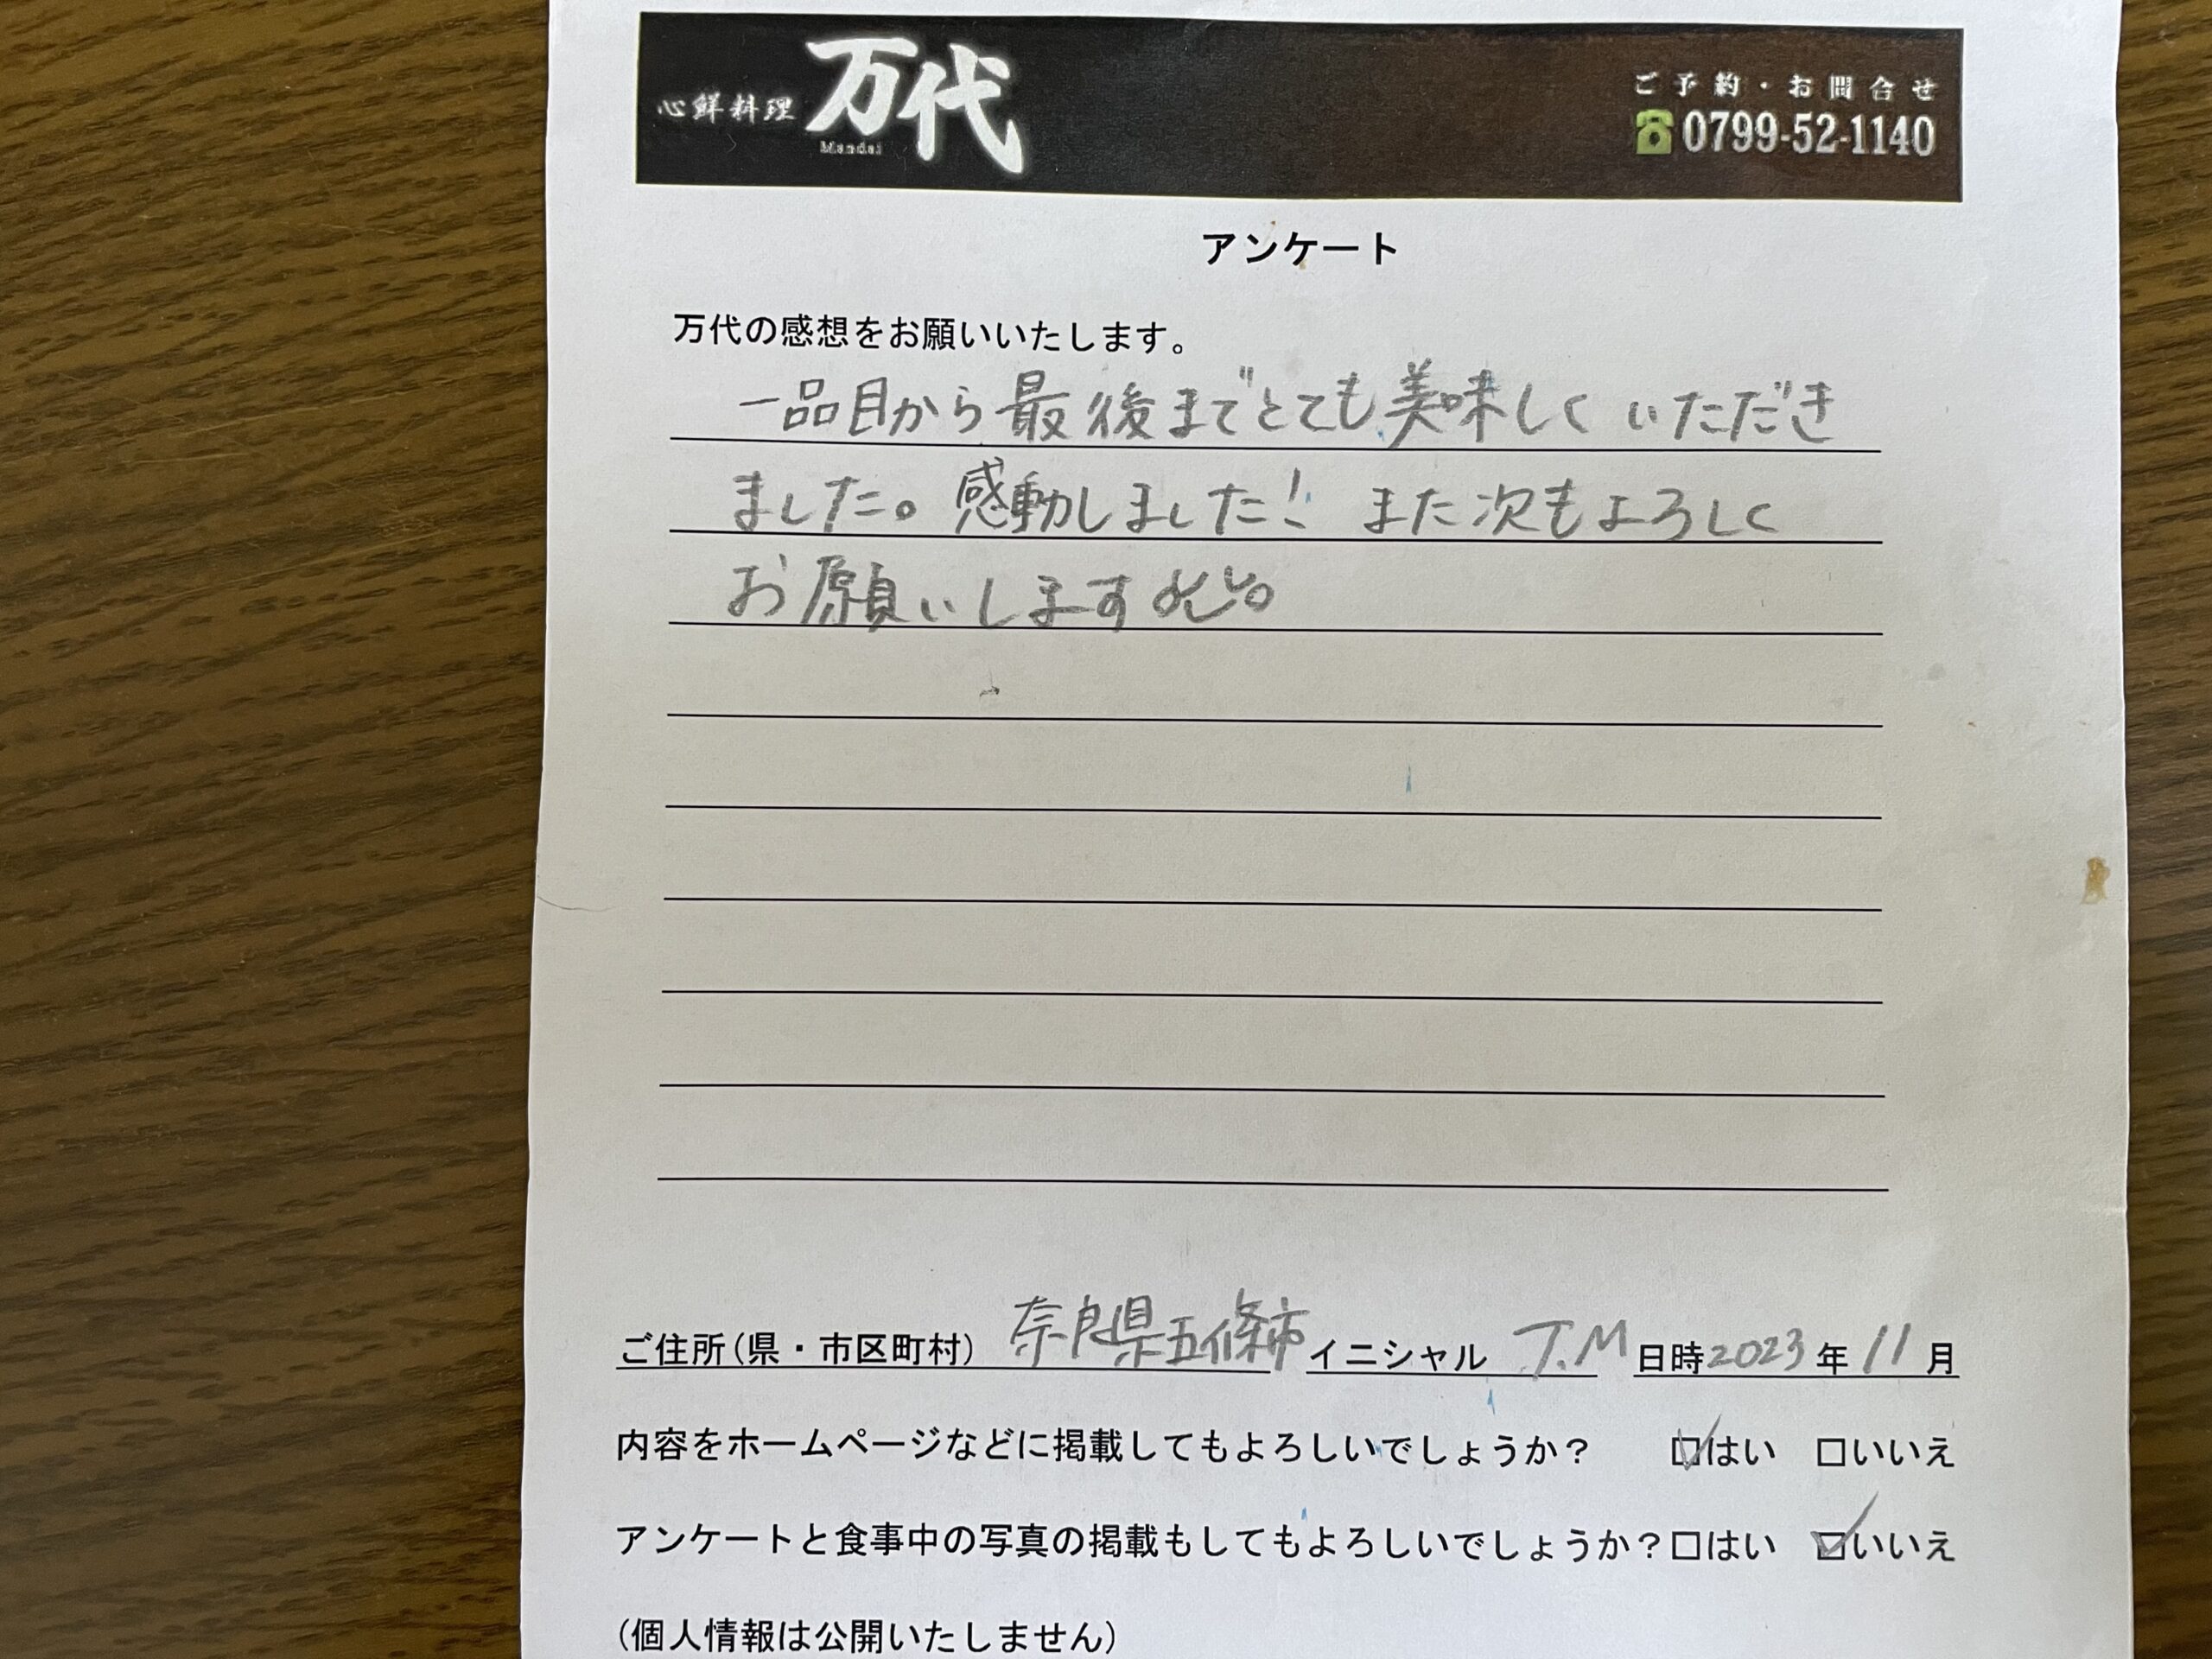 心鮮料理 万代
Mandai
ご予約・お問合せ
0799-52-1140
アンケート
万代の感想をお願いいたします。
一品目から最後までとても美味しくいただき
ました。感動しました! また次もよろしく
お願いします
ご住所(県・市区町村) 奈良県五條市 イニシャル T.M 日時2023年11月
内容をホームページなどに掲載してもよろしいでしょうか? ☑はい □いいえ
アンケートと食事中の写真の掲載もしてもよろしいでしょうか?□はい ☑いいえ
(個人情報は公開いたしません)